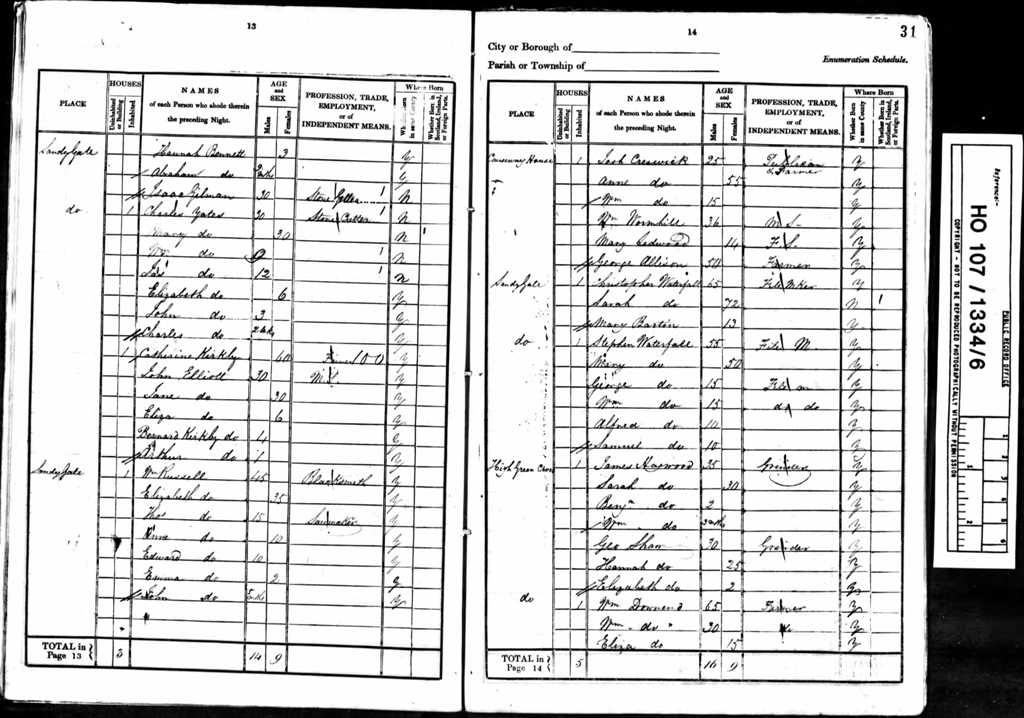 13
HOUSES
NAMES
AGE and SEX
PROFESSION, TRADE, EMPLOYMENT, or of INDEPENDENT MEANS.
Where Born
PLACE
Uninhabited or Building
Inhabited
of each Person who abode therein the preceding Night.
Males
Females
Whether Born in same County
Whether Born in Scotland, Ireland, or Foreign Parts.
Sandy Gate Hannah Bennett 3 y
Abraham do y
Isaac Gilman 30 Stone Cutter N
do 1 Charles Yates 30 Stone Cutter N
Mary do 30 N
Wm do 9 N
do 12 N
Elizabeth do 6 y
John do 3 y
Charles do y
1 Catherine Kirkby 60 y
John Elliott 30 y
Jane do 30 y
Eliza do 6 y
Bernard Kirkby do 4 y
Arthur do 1 y
Sandy Gate 1 Wm Russell 45 Blacksmith y
Elizabeth do 35 y
Thos do 15 y
Anne do 10 y
Edward do 10 y
Emma do 2 y
John do y
TOTAL in Page 13 3 14 9
14
31
City or Borough of
Parish or Township of
Enumeration Schedule.
PLACE
HOUSES
Uninhabited or Building
Inhabited
NAMES
of each Person who abode therein the preceding Night.
AGE and SEX
Males
Females
PROFESSION, TRADE, EMPLOYMENT, or of INDEPENDENT MEANS.
Where Born
Whether Born in same County
Whether Born in Scotland, Ireland, or Foreign Parts.
Causeway House 1 Creswick 25 Publican & Farmer y
Anne do 55 y
Wm do 15 y
Wm Wormhill 36 M S y
Mary 14 F S y
George Allison 50 y
Sandy Gate 1 Christopher Waterfall 65 File Mker y
Sarah do 72 N
Mary 13 y
do 1 Stephen Waterfall 55 File M y
Mary do 50 y
George do 15 y
Wm do 15 do do y
Alfred do 10 y
Samuel do 10 y
1 James Harwood 35 Grinder y
Sarah do 30 y
Benjn do 2 y
Wm do y
Geo Shaw 30 Grinder y
Hannah do 25 y
Elizabeth do 2 y
do 1 Wm Downend 65 Farmer y
Wm do 30 y
Eliza do 15 y
TOTAL in Page 14 5 16 9
Reference:-
HO 107/1334/6
PUBLIC RECORD OFFICE
COPYRIGHT - NOT TO BE REPRODUCED PHOTOGRAPHICALLY WITHOUT PERMISSION